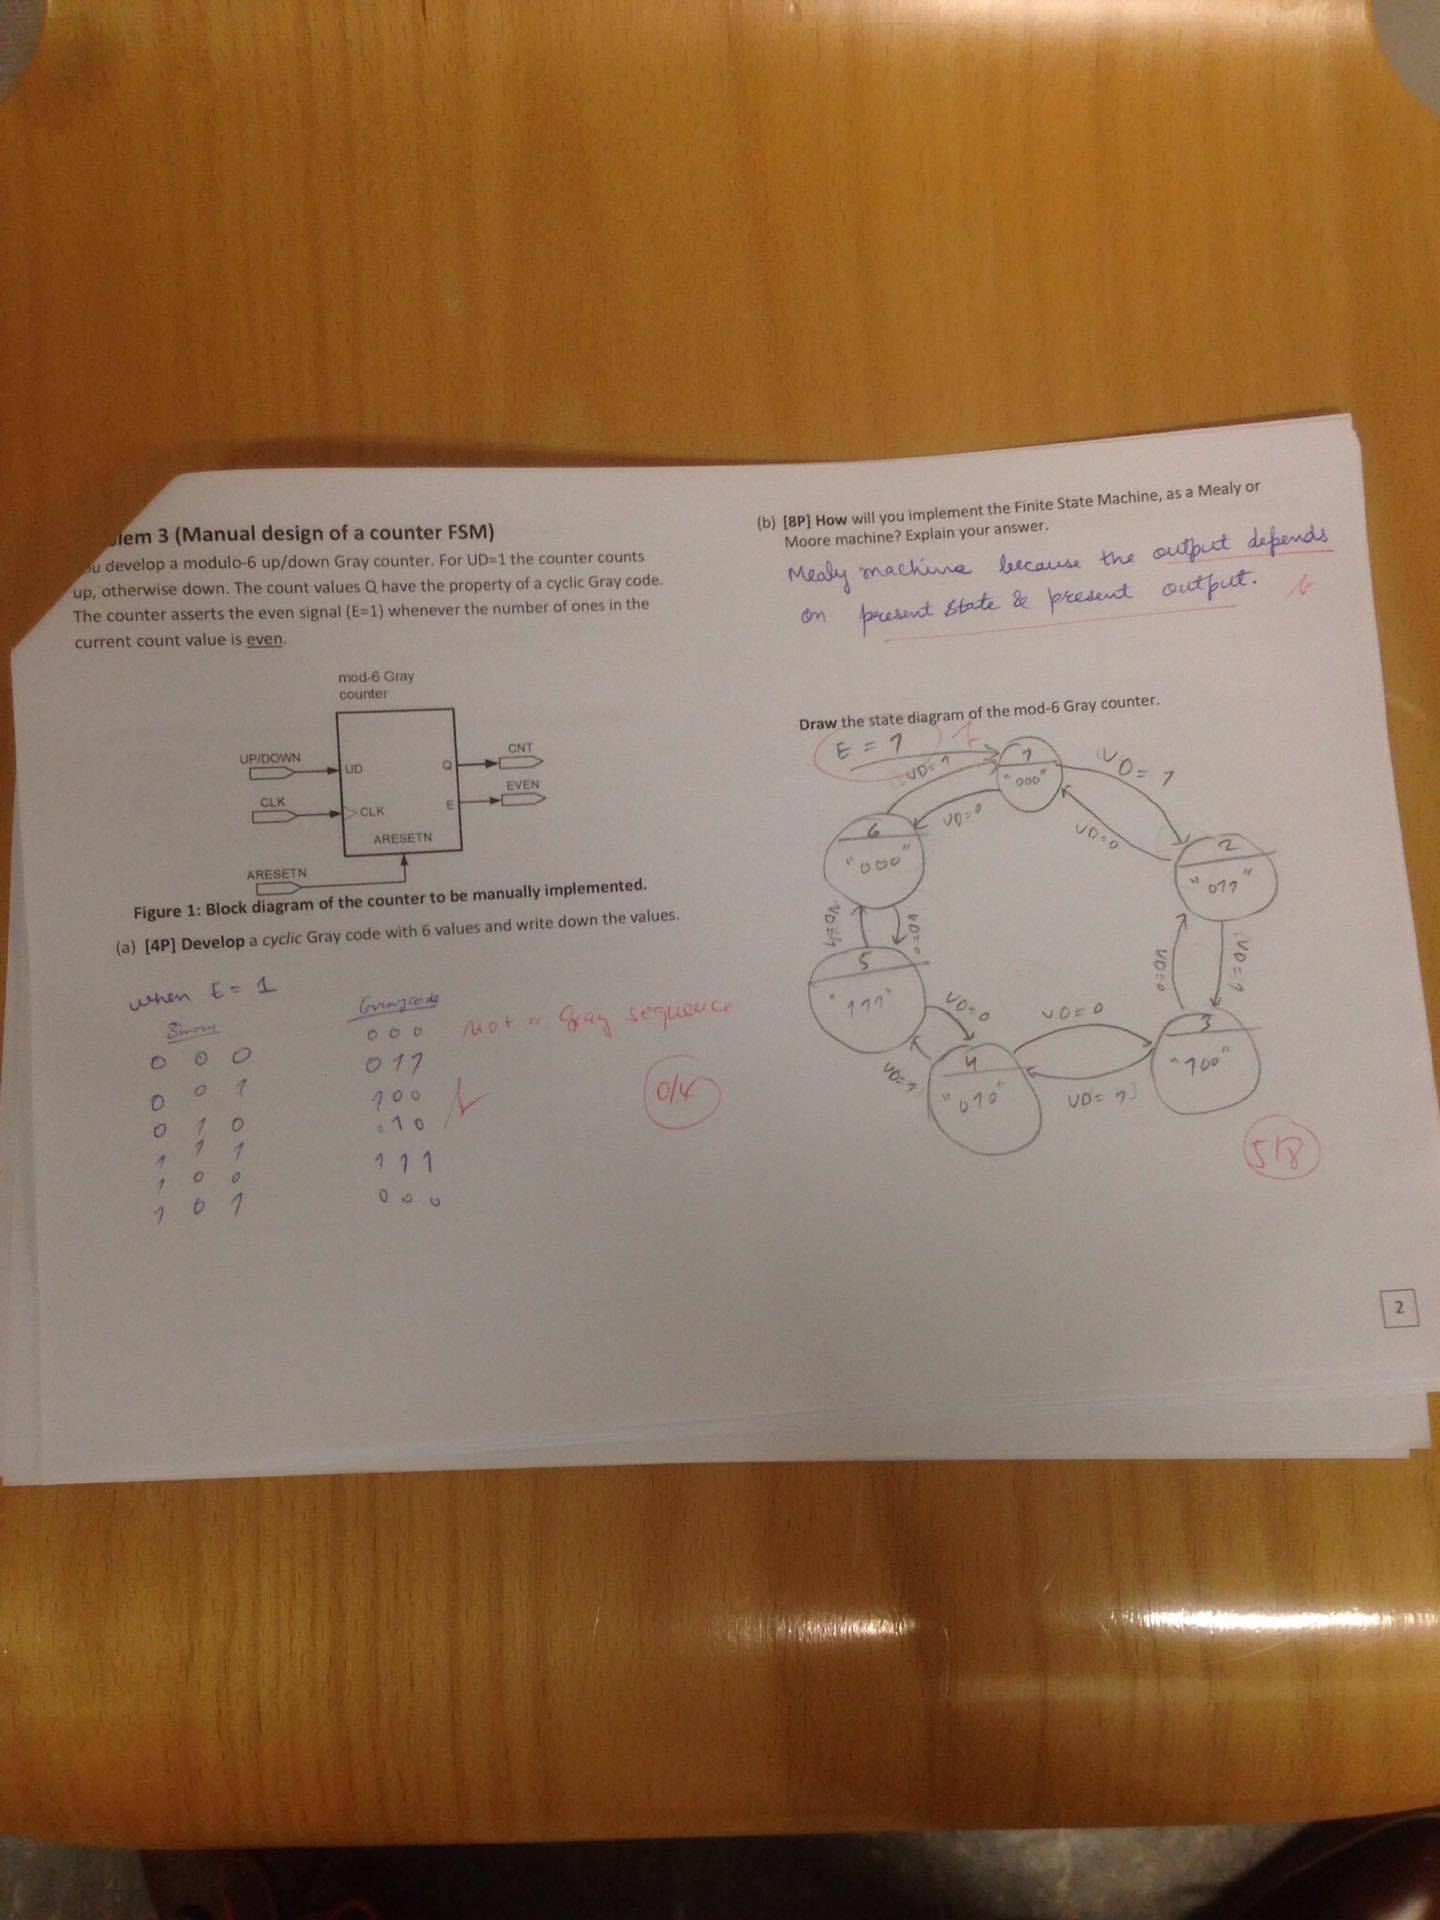 lem 3 (Manual design of a counter FSM)
u develop a modulo-6 up/down Gray counter. For UD=1 the counter counts
up, otherwise down. The count values Q have the property of a cyclic Gray code.
The counter asserts the even signal (E=1) whenever the number of ones in the
current count value is even.
mod-6 Gray
counter
UP/DOWN
UD
Q
CNT
CLK
CLK
E
EVEN
ARESETN
ARESETN
Figure 1: Block diagram of the counter to be manually implemented.
(a) [4P] Develop a cyclic Gray code with 6 values and write down the values.
when E = 1
Binary
0 0 0
0 0 1
0 1 0
1 1 1
1 0 0
1 0 1
Graycode
0 0 0
0 1 1
1 0 0
0 1 0
1 1 1
0 0 0
not a Gray sequence
0/4
(b) [8P] How will you implement the Finite State Machine, as a Mealy or
Moore machine? Explain your answer.
Mealy machine because the output depends
on present state & present output.
Draw the state diagram of the mod-6 Gray counter.
E = 1
1
"000"
UD=1
UD=0
UD=1
UD=0
6
"000"
2
"011"
UD=1
UD=0
UD=0
UD=1
5
"111"
3
"100"
UD=0
UD=1
UD=0
UD=1
4
"010"
5/8
2